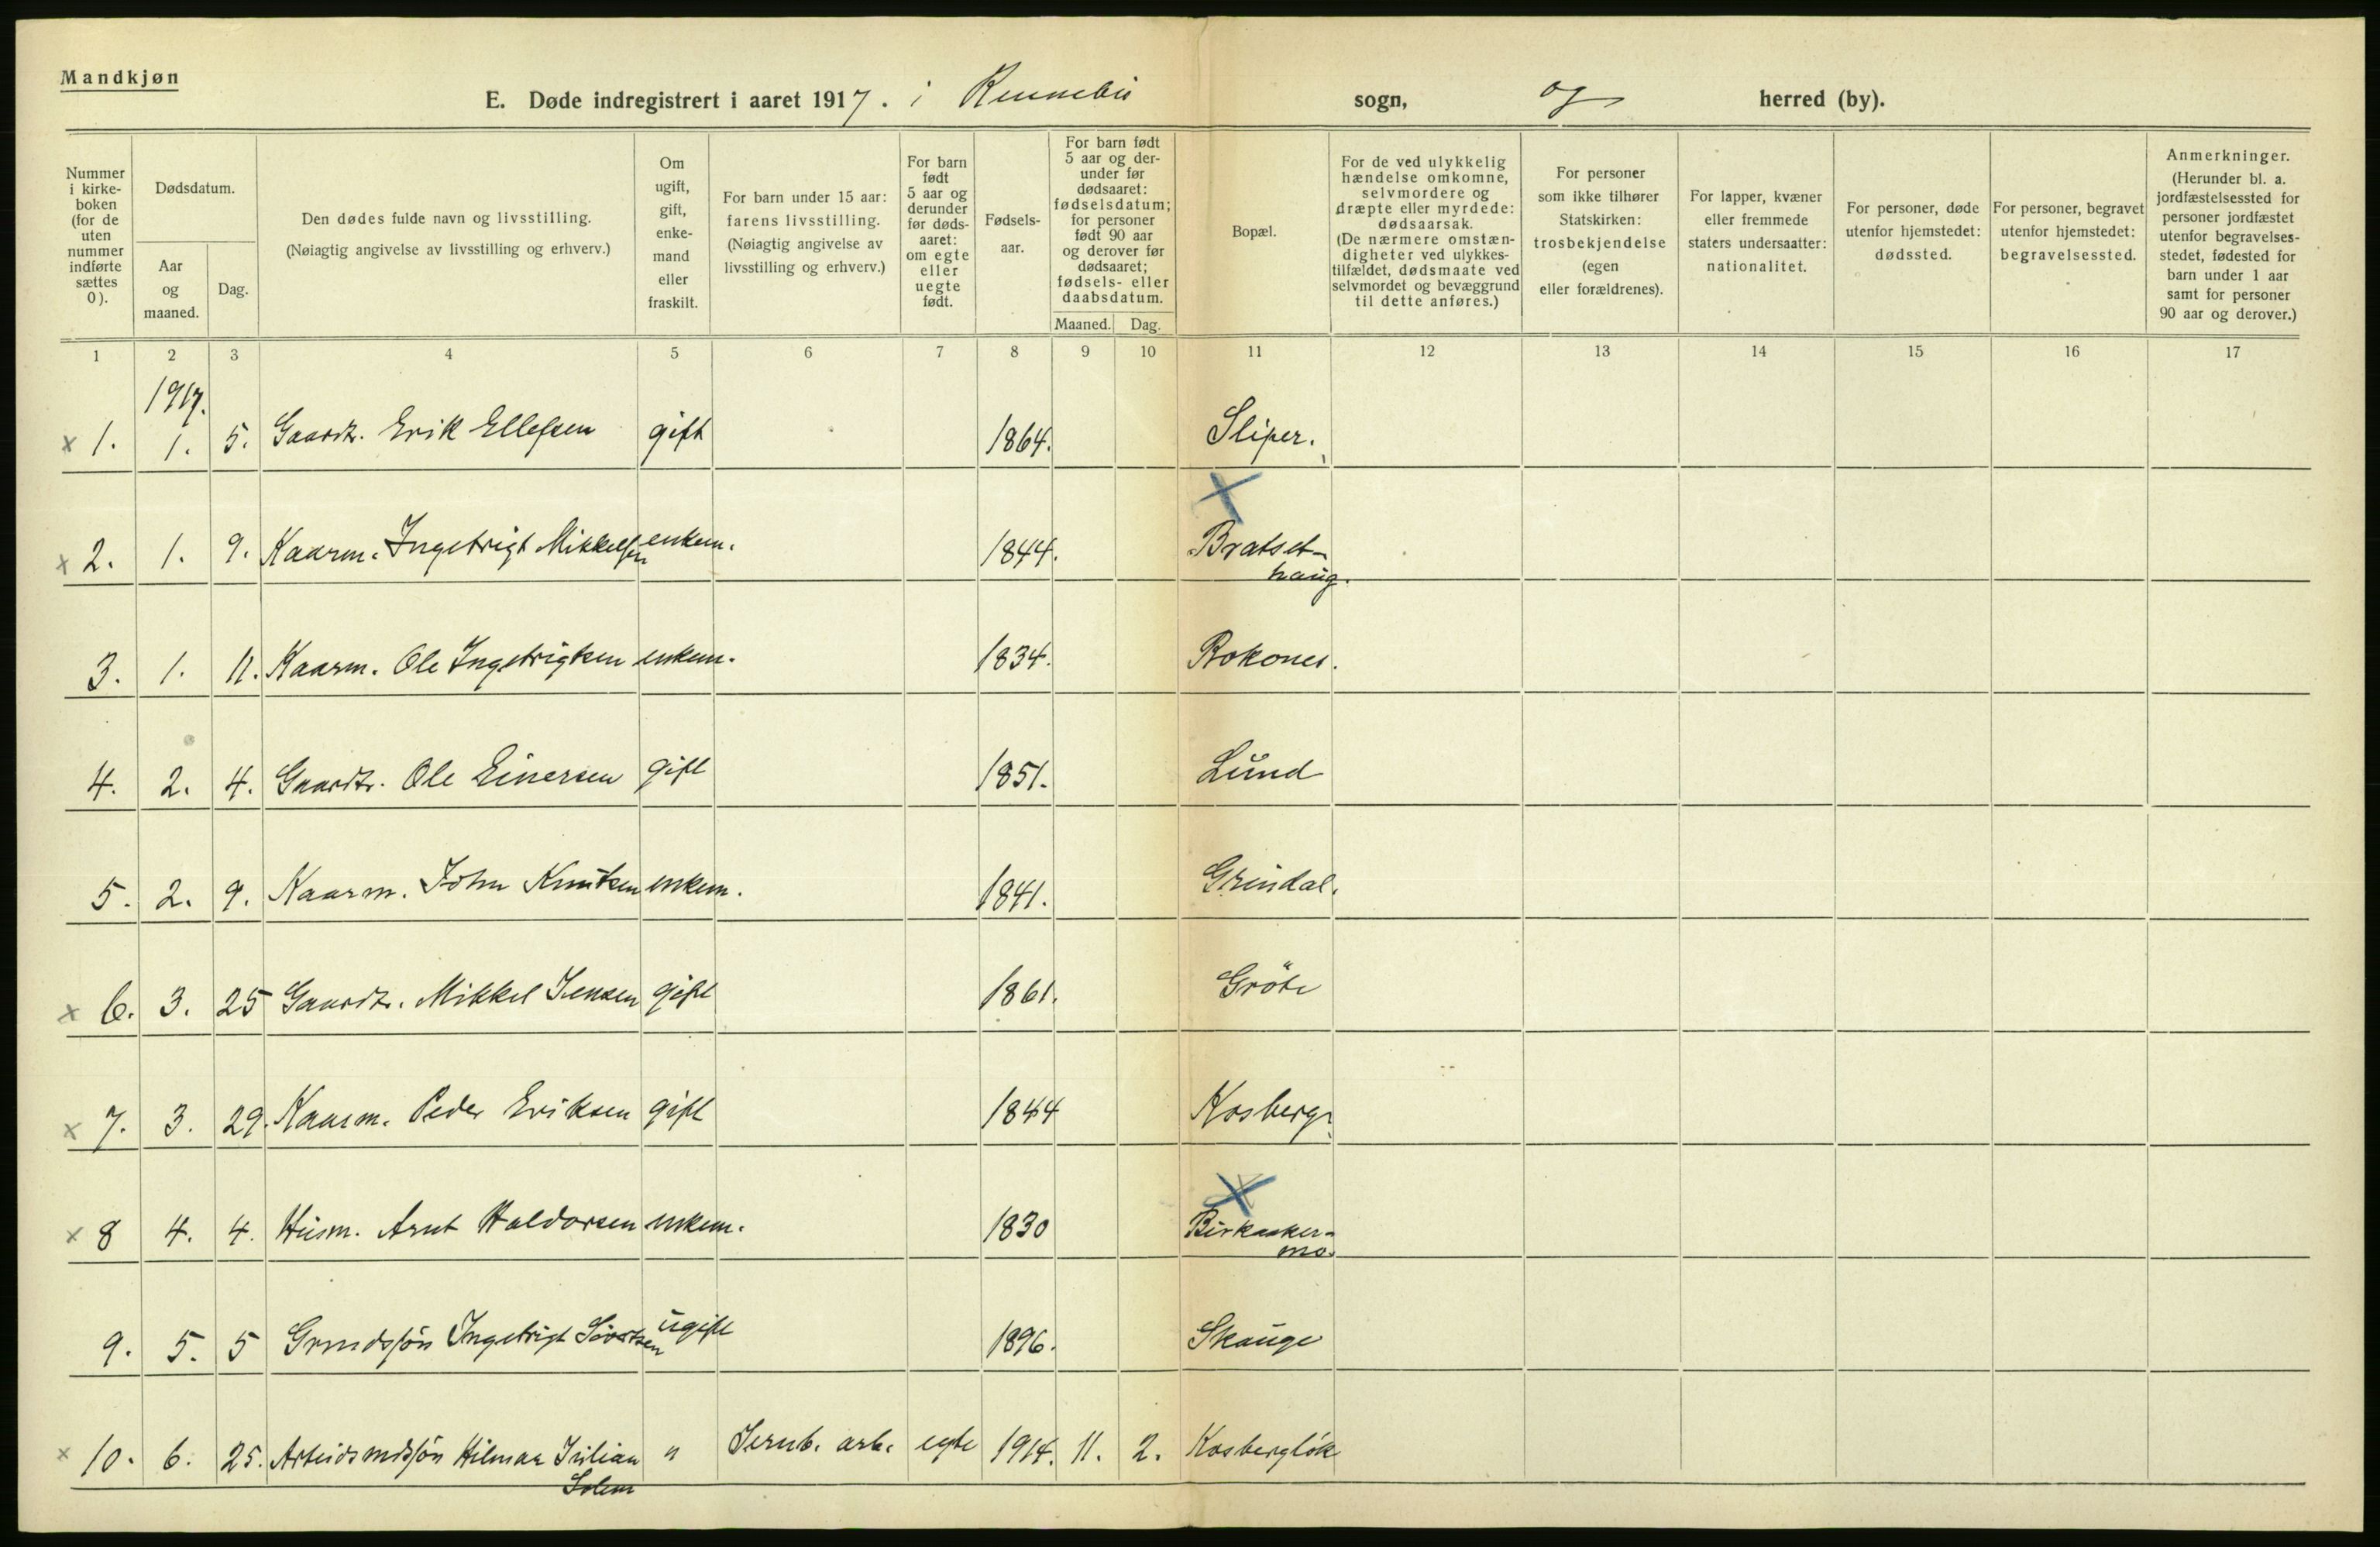 Mandkjøn
E. Døde indregistrert i aaret 1917. i Rennebu sogn, og herred (by).
Nummer i kirke- boken (for de uten nummer indførte sættes 0).
Dødsdatum.
Aar og maaned.
Dag.
Den dødes fulde navn og livsstilling.
(Nøiagtig angivelse av livsstilling og erhverv.)
Om ugift, gift, enke- mand eller fraskilt.
For barn under 15 aar: farens livsstilling. (Nøiagtig angivelse av livsstilling og erhverv.)
For barn født 5 aar og derunder før døds- aaret: om egte eller uegte født.
Fødsels- aar.
For barn født 5 aar og der- under før dødsaaret: fødselsdatum; for personer født 90 aar og derover før dødsaaret; fødsels- eller daabsdatum.
Maaned. Dag.
Bopæl.
For de ved ulykkelig hændelse omkomne, selvmordere og dræpte eller myrdede: dødsaarsak. (De nærmere omstæn- digheter ved ulykkes- tilfældet, dødsmaate ved selvmordet og bevæggrund til dette anføres.)
For personer som ikke tilhører Statskirken: trosbekjendelse (egen eller forældrenes).
For lapper, kvæner eller fremmede staters undersaatter: nationalitet.
For personer, døde utenfor hjemstedet: dødssted.
For personer, begravet utenfor hjemstedet: begravelsessted.
Anmerkninger. (Herunder bl. a. jordfæstelsessted for personer jordfæstet utenfor begravelses- stedet, fødested for barn under 1 aar samt for personer 90 aar og derover.)
1 2 3 4 5 6 7 8 9 10 11 12 13 14 15 16 17
1917.
x 1. 1. 5. Gaardbr. Erik Ellefsen gift 1864. Sliper.
x 2. 1. 9. Kaarm. Ingebrigt Mikkelsen enkem. 1844. Bratset-
haug.
3. 1. 11. Kaarm. Ole Ingebrigtsen enkem. 1834. Rokones.
4. 2. 4. Gaardbr. Ole Einersen gift 1851. Lund
5. 2. 9. Kaarm. John Knutsen enkem. 1841. Grindal.
x 6. 3. 25 Gaardbr. Mikkel Jensen gift 1861. Gröte
x 7. 3. 29. Kaarm. Peder Eriksen gift 1844 Kosberg
x 8 4. 4. Husm. Arnt Haldorsen enkem. 1830 Birkaaker-
mo.
9. 5. 5 Grmdsjön Ingebrigt Sivertsen ugift 1896. Skauge
x 10. 6. 25. Arbeidsmdsjön Hilmar Julian " Jernb. arb. egte 1914. 11. 2. Kosberglök
Solem